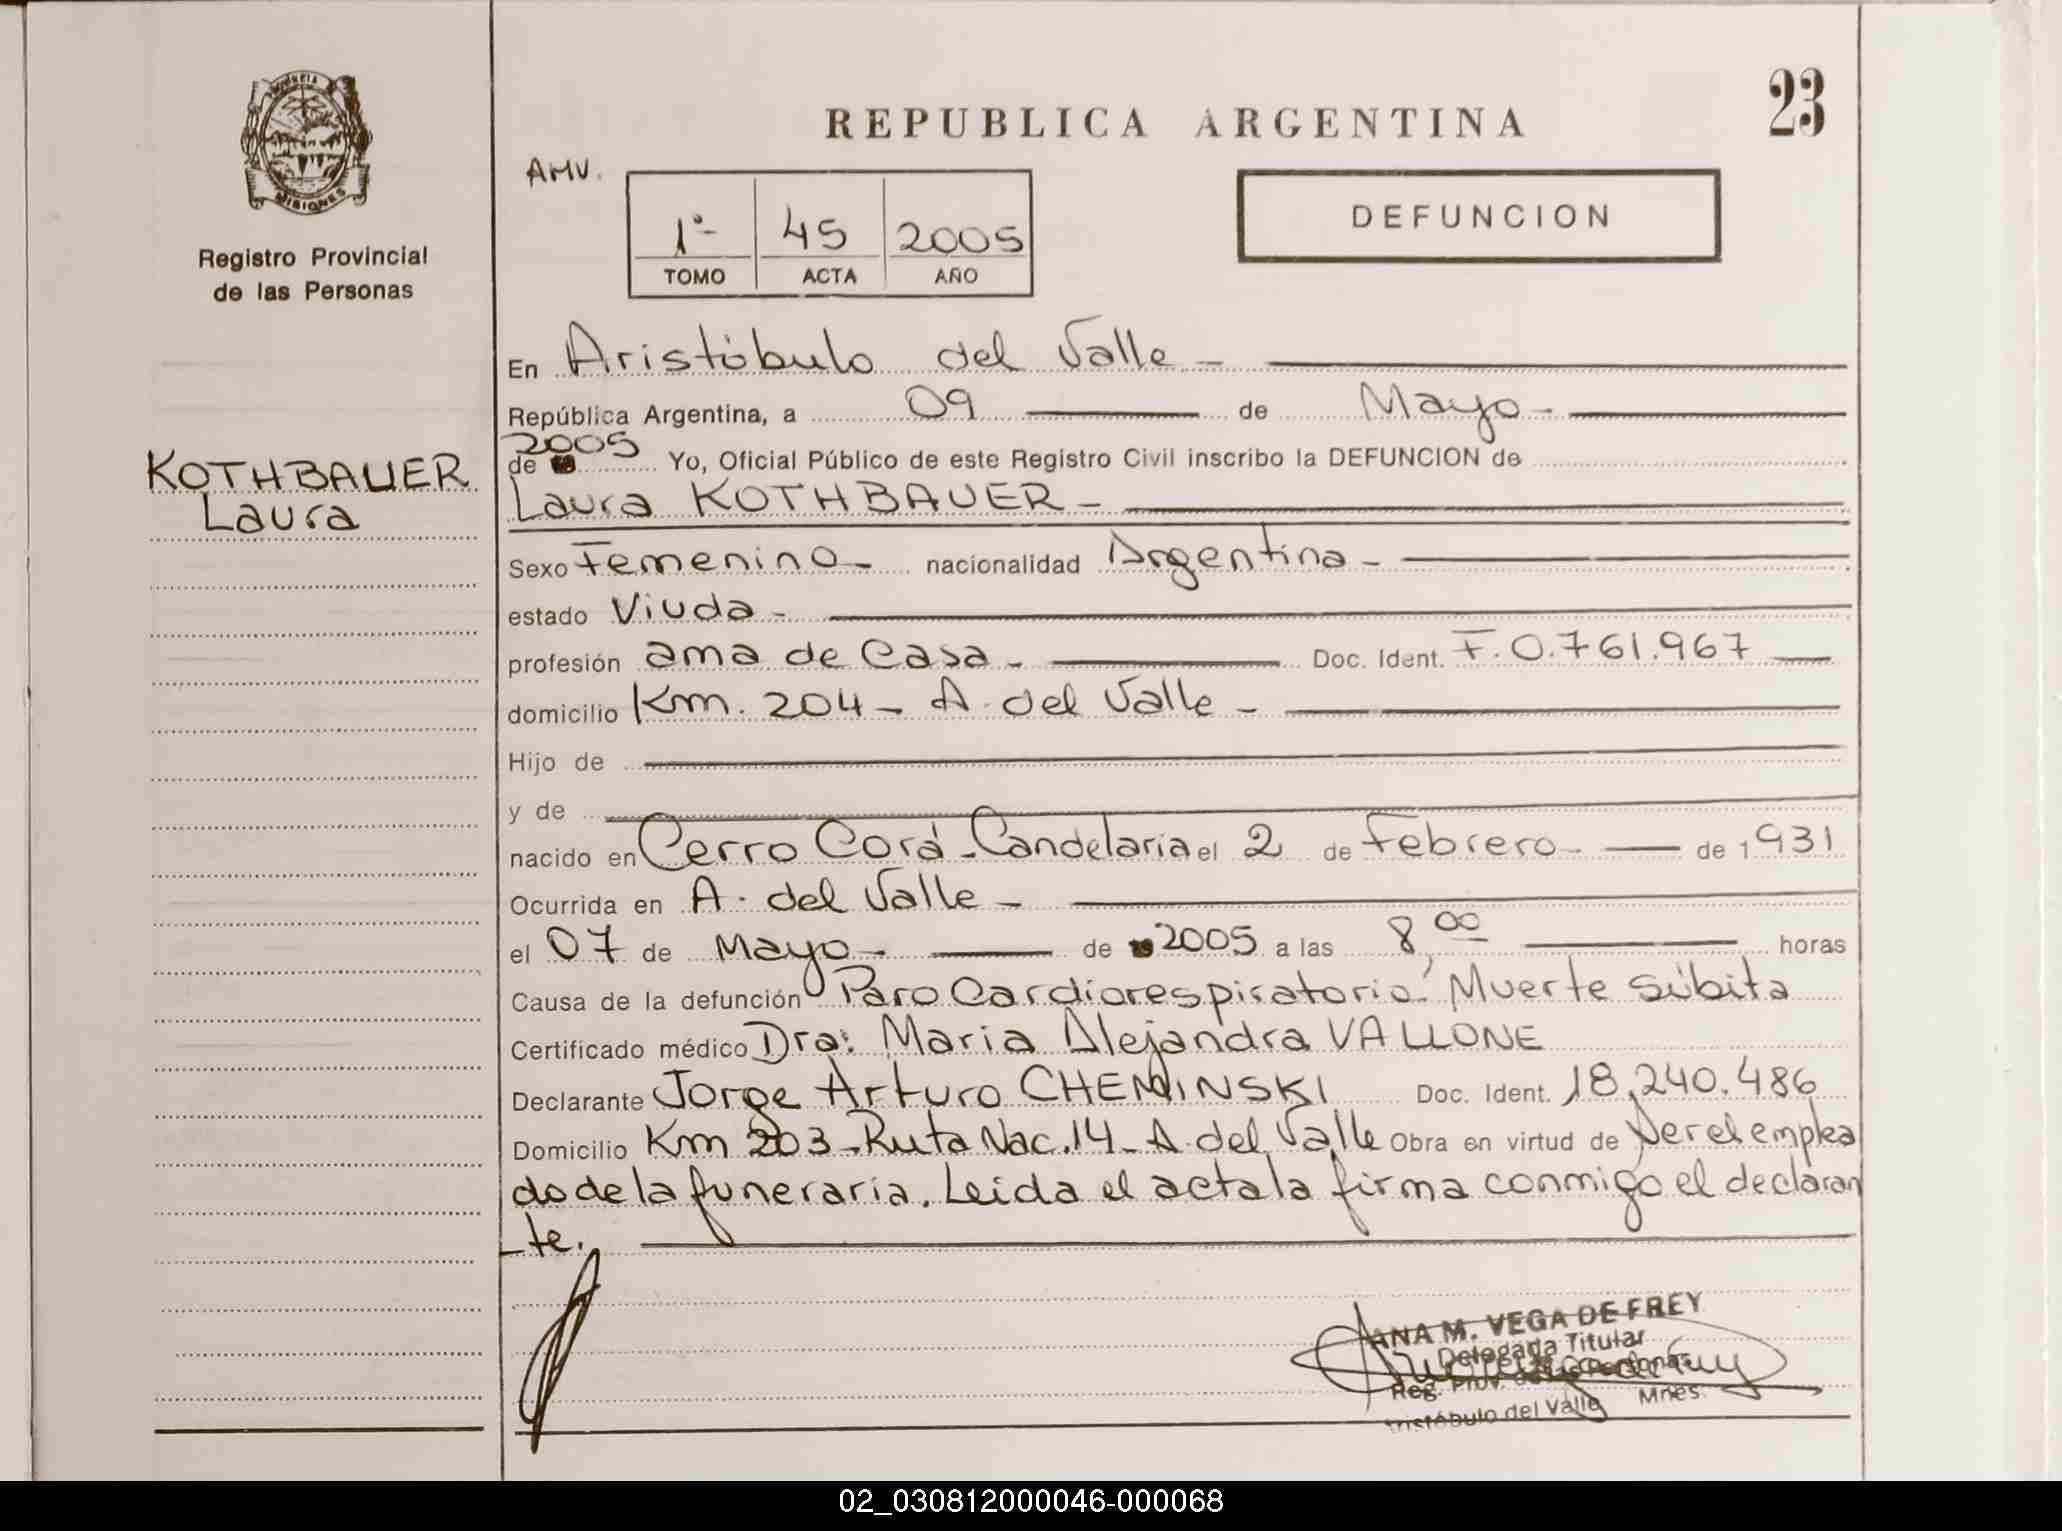 REPUBLICA ARGENTINA
23
AMV.
DEFUNCION
1º 45 2005
TOMO ACTA AÑO
Registro Provincial
de las Personas
KOTHBAUER
Laura
En Aristóbulo del Valle -
República Argentina, a 09 de Mayo -
de 2005 Yo, Oficial Público de este Registro Civil inscribo la DEFUNCION de
Laura KOTHBAUER -
Sexo Femenino - nacionalidad Argentina -
estado Viuda -
profesión ama de Casa - Doc. Ident. F. 0.761.967
domicilio Km. 204 - A. del Valle -
Hijo de
y de
nacido en Cerro Corá - Candelaria el 2 de Febrero - de 1931
Ocurrida en A. del Valle -
el 07 de Mayo - de 2005 a las 8,00 horas
Causa de la defunción Paro Cardiorespiratorio. Muerte súbita
Certificado médico Dra: Maria Alejandra VALLONE
Declarante Jorge Arturo CHEMINSKI Doc. Ident. 18.240.486
Domicilio Km 203 - Ruta Nac. 14 - A. del Valle Obra en virtud de ser el emplea
do de la funeraria. Leída el acta la firma conmigo el declaran
-te.
ANA M. VEGA DE FREY
Delegada Titular
Reg. Prov. de las Personas
Aristóbulo del Valle Mnes
02_030812000046-000068